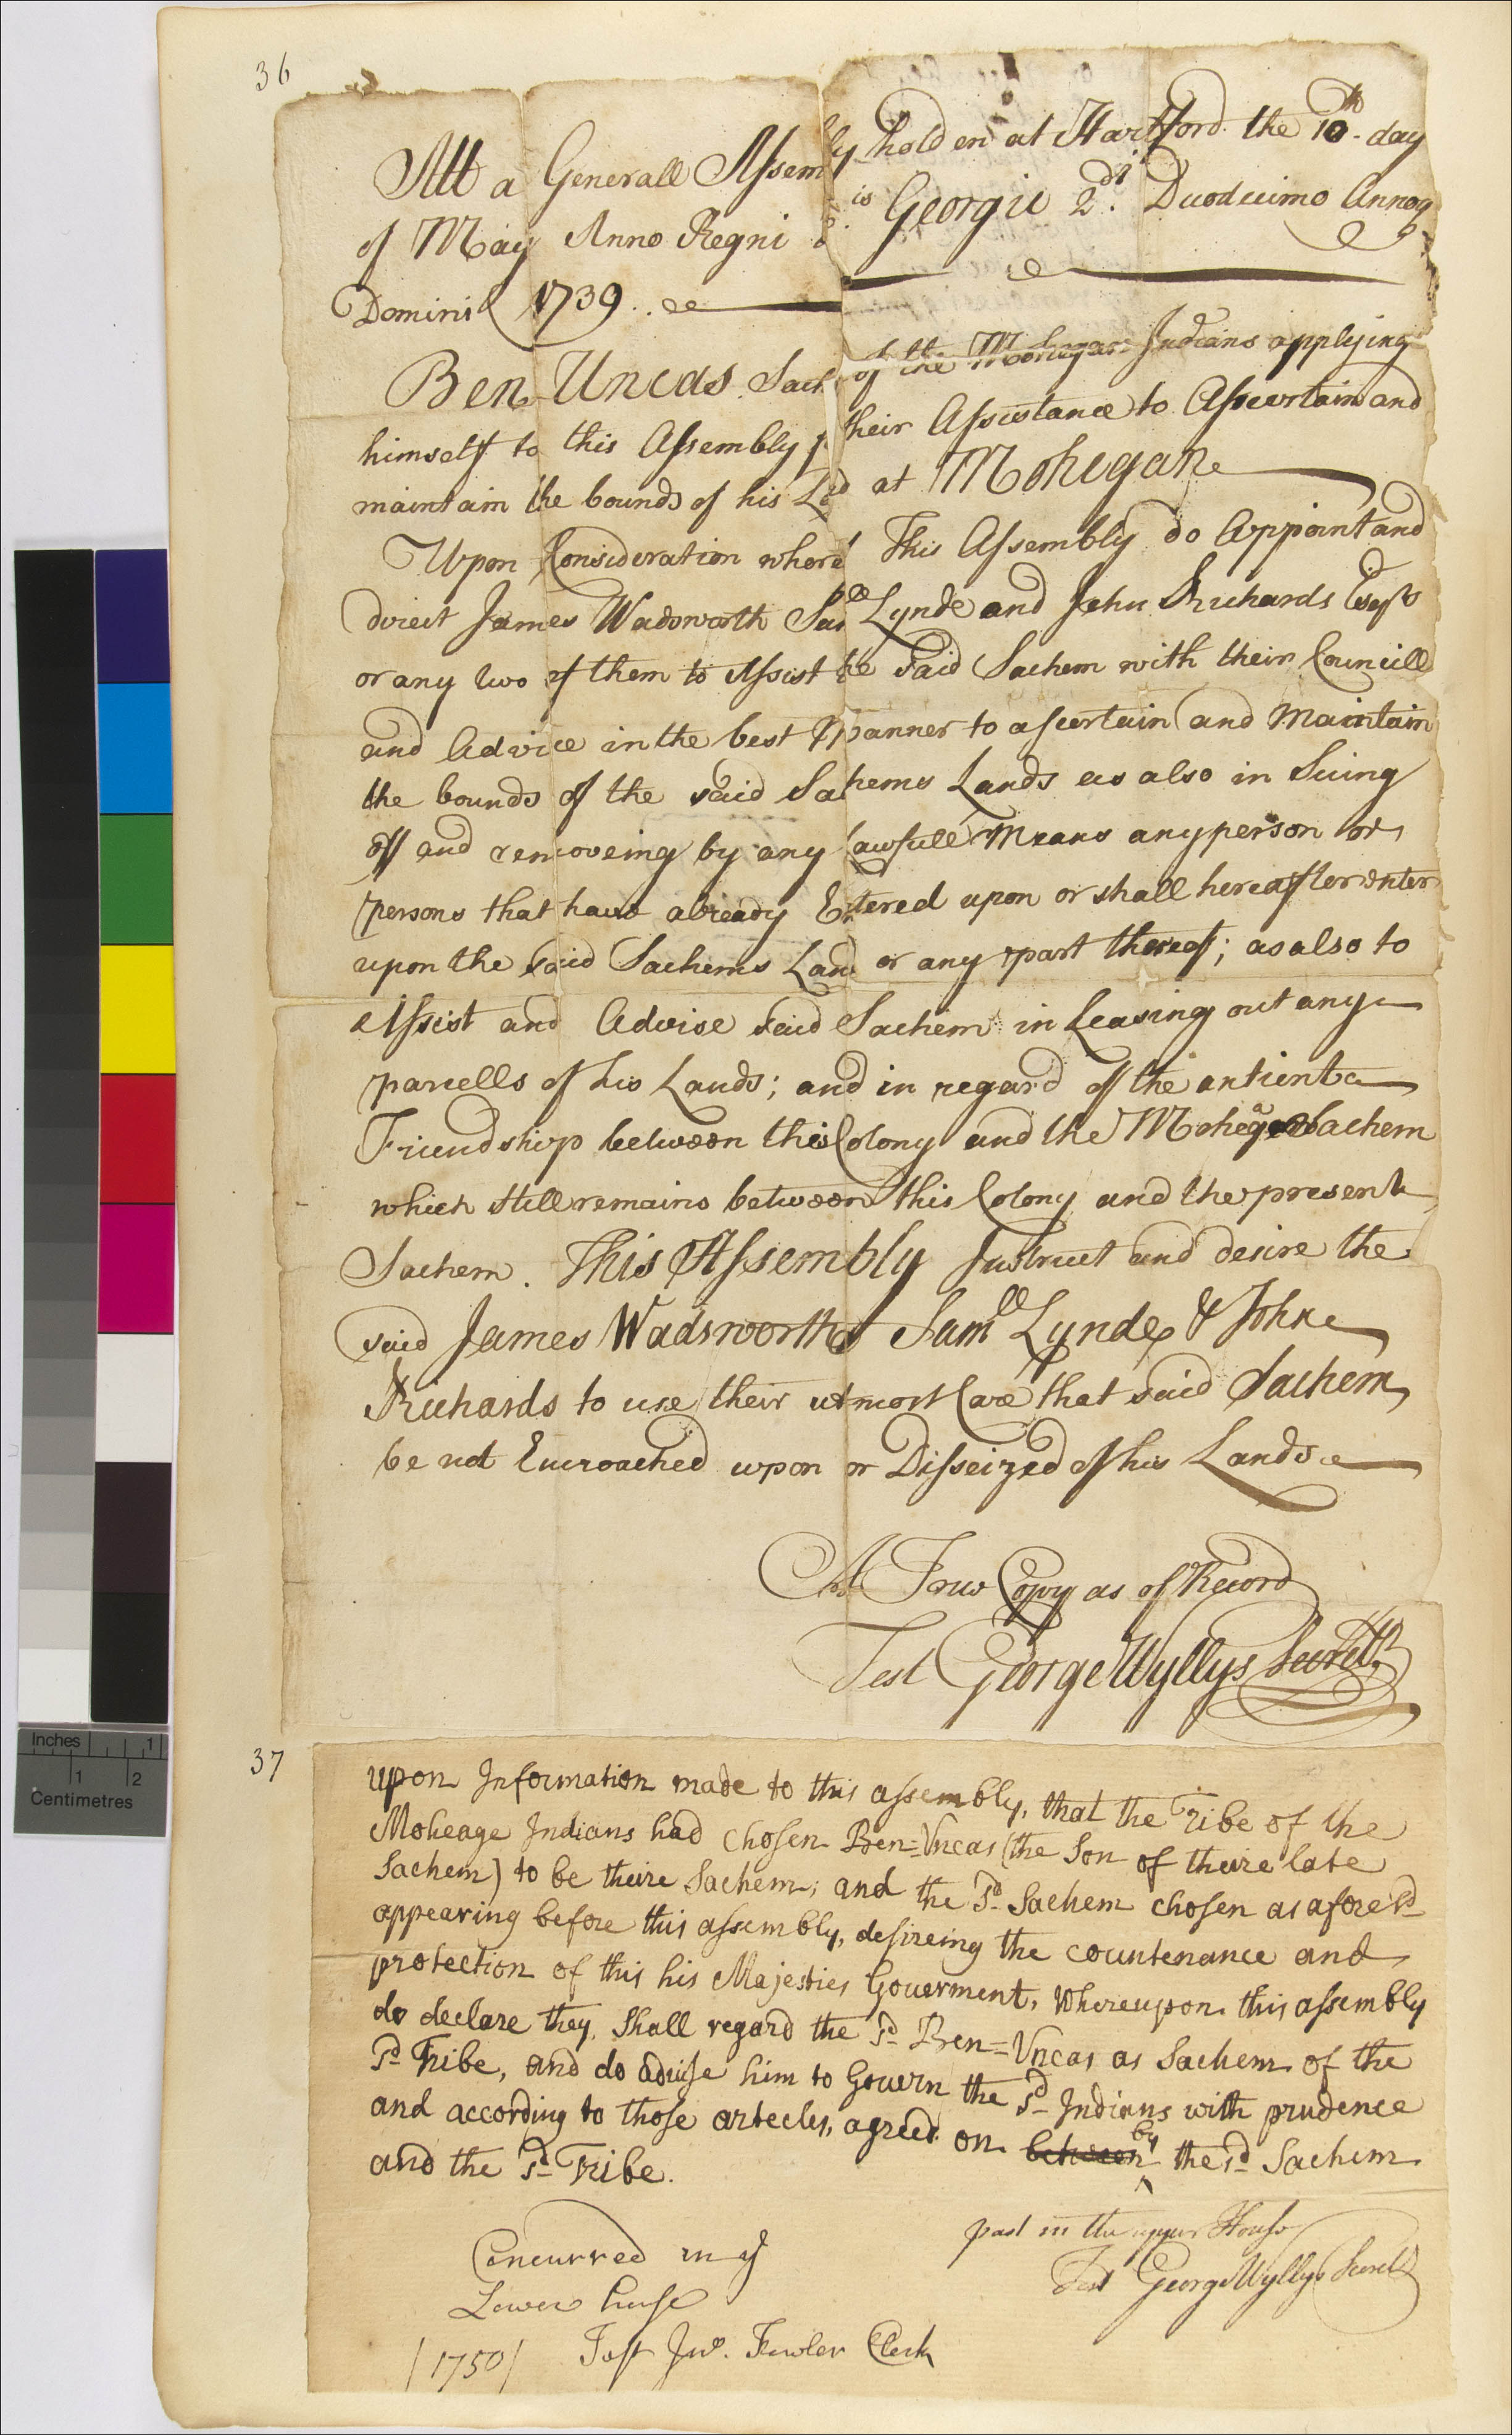 36
Att a Generall Assembly holden at Hartford the 10th day
of May Anno Regni is Georgii 2di. Duodecimo Annoq
Domini 1739
Ben Uncas Sach of the Mohegan Indians applying
himself to this Assembly their Assistance to Ascertain and
maintain the bounds of his Land at Mohegan
Upon Consideration where This Assembly do Appoint and
direct James Wadsworth Samll Lynde and John Richards Esqrs
or any two of them to Assist the said Sachem with their Councill
and Advice in the best Manner to ascertain and Maintain
the bounds of the said Sachems Lands as also in Suing
off and removeing by any lawfull Means any person or
persons that have already Entered upon or shall hereafter enter
upon the said Sachems Land or any part thereof; as also to
Assist and Advise said Sachem in Leasing out any
parcells of his Lands; and in regard of the antient
Friendship between this Colony and the Mohegan Sachem
which still remains between this Colony and the present
Sachem. This Assembly Instruct and desire the
said James Wadsworth Samll Lynde & John
Richards to use their utmost Care that said Sachem
be not Encroached upon or Disseized of his Lands
A True Copy as of Record
Test George Wyllys Secretr
37
upon Information made to this assembly, that the Tribe of the
Moheage Indians had chosen Ben=Uncas (the Son of theire late
Sachem) to be theire Sachem; and the sd Sachem chosen as aforesd
appearing before this assembly, desireing the countenance and
protection of this his Majesties Gouerment, whereupon this assembly
do declare they shall regard the sd Ben=Uncas as Sachem of the
sd Tribe, and do aduise him to Gouern the sd Indians with prudence
and according to those artecles, agreed on between by the sd Sachem
and the sd Tribe.
past in the upper House
Test George Wyllys Secret
Concurred in ye
Lower house
/1750/ Test Jno. Fowler Clerk
Inches 1
1 2
Centimetres